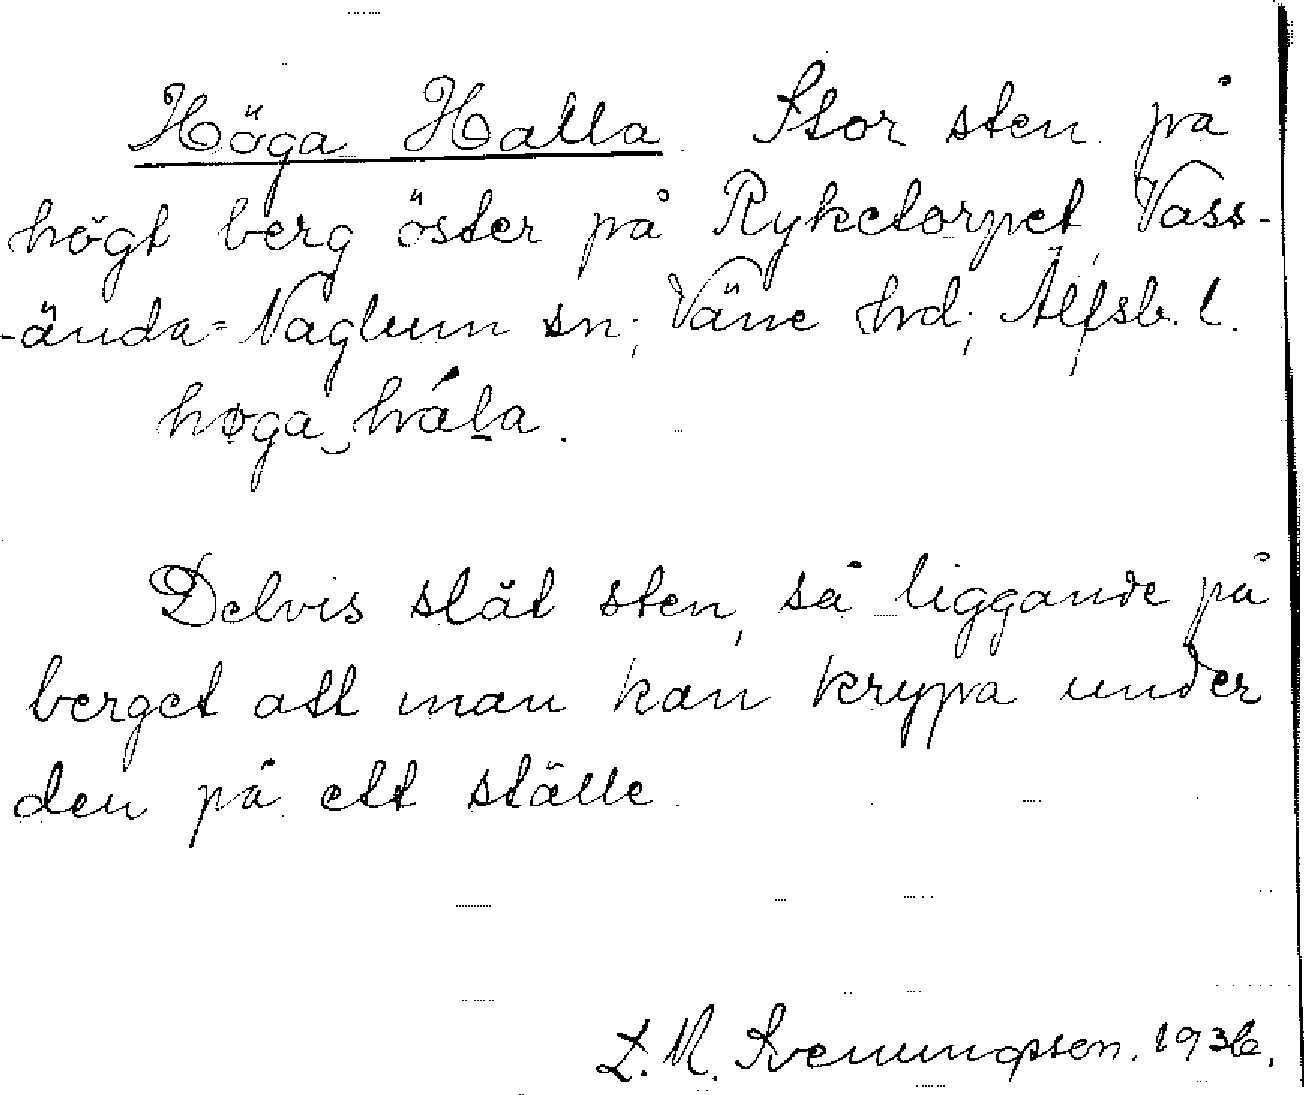 Höga Halla. Stor sten på
högt berg öster på Ryketorpet, Vass-
-ända-Naglum sn; Väne hrd; Älfsb. l.
høga hála.
Delvis slät sten, så liggande på
berget att man kan krypa under
den på ett ställe.
L. M. Svenungsson. 1936.